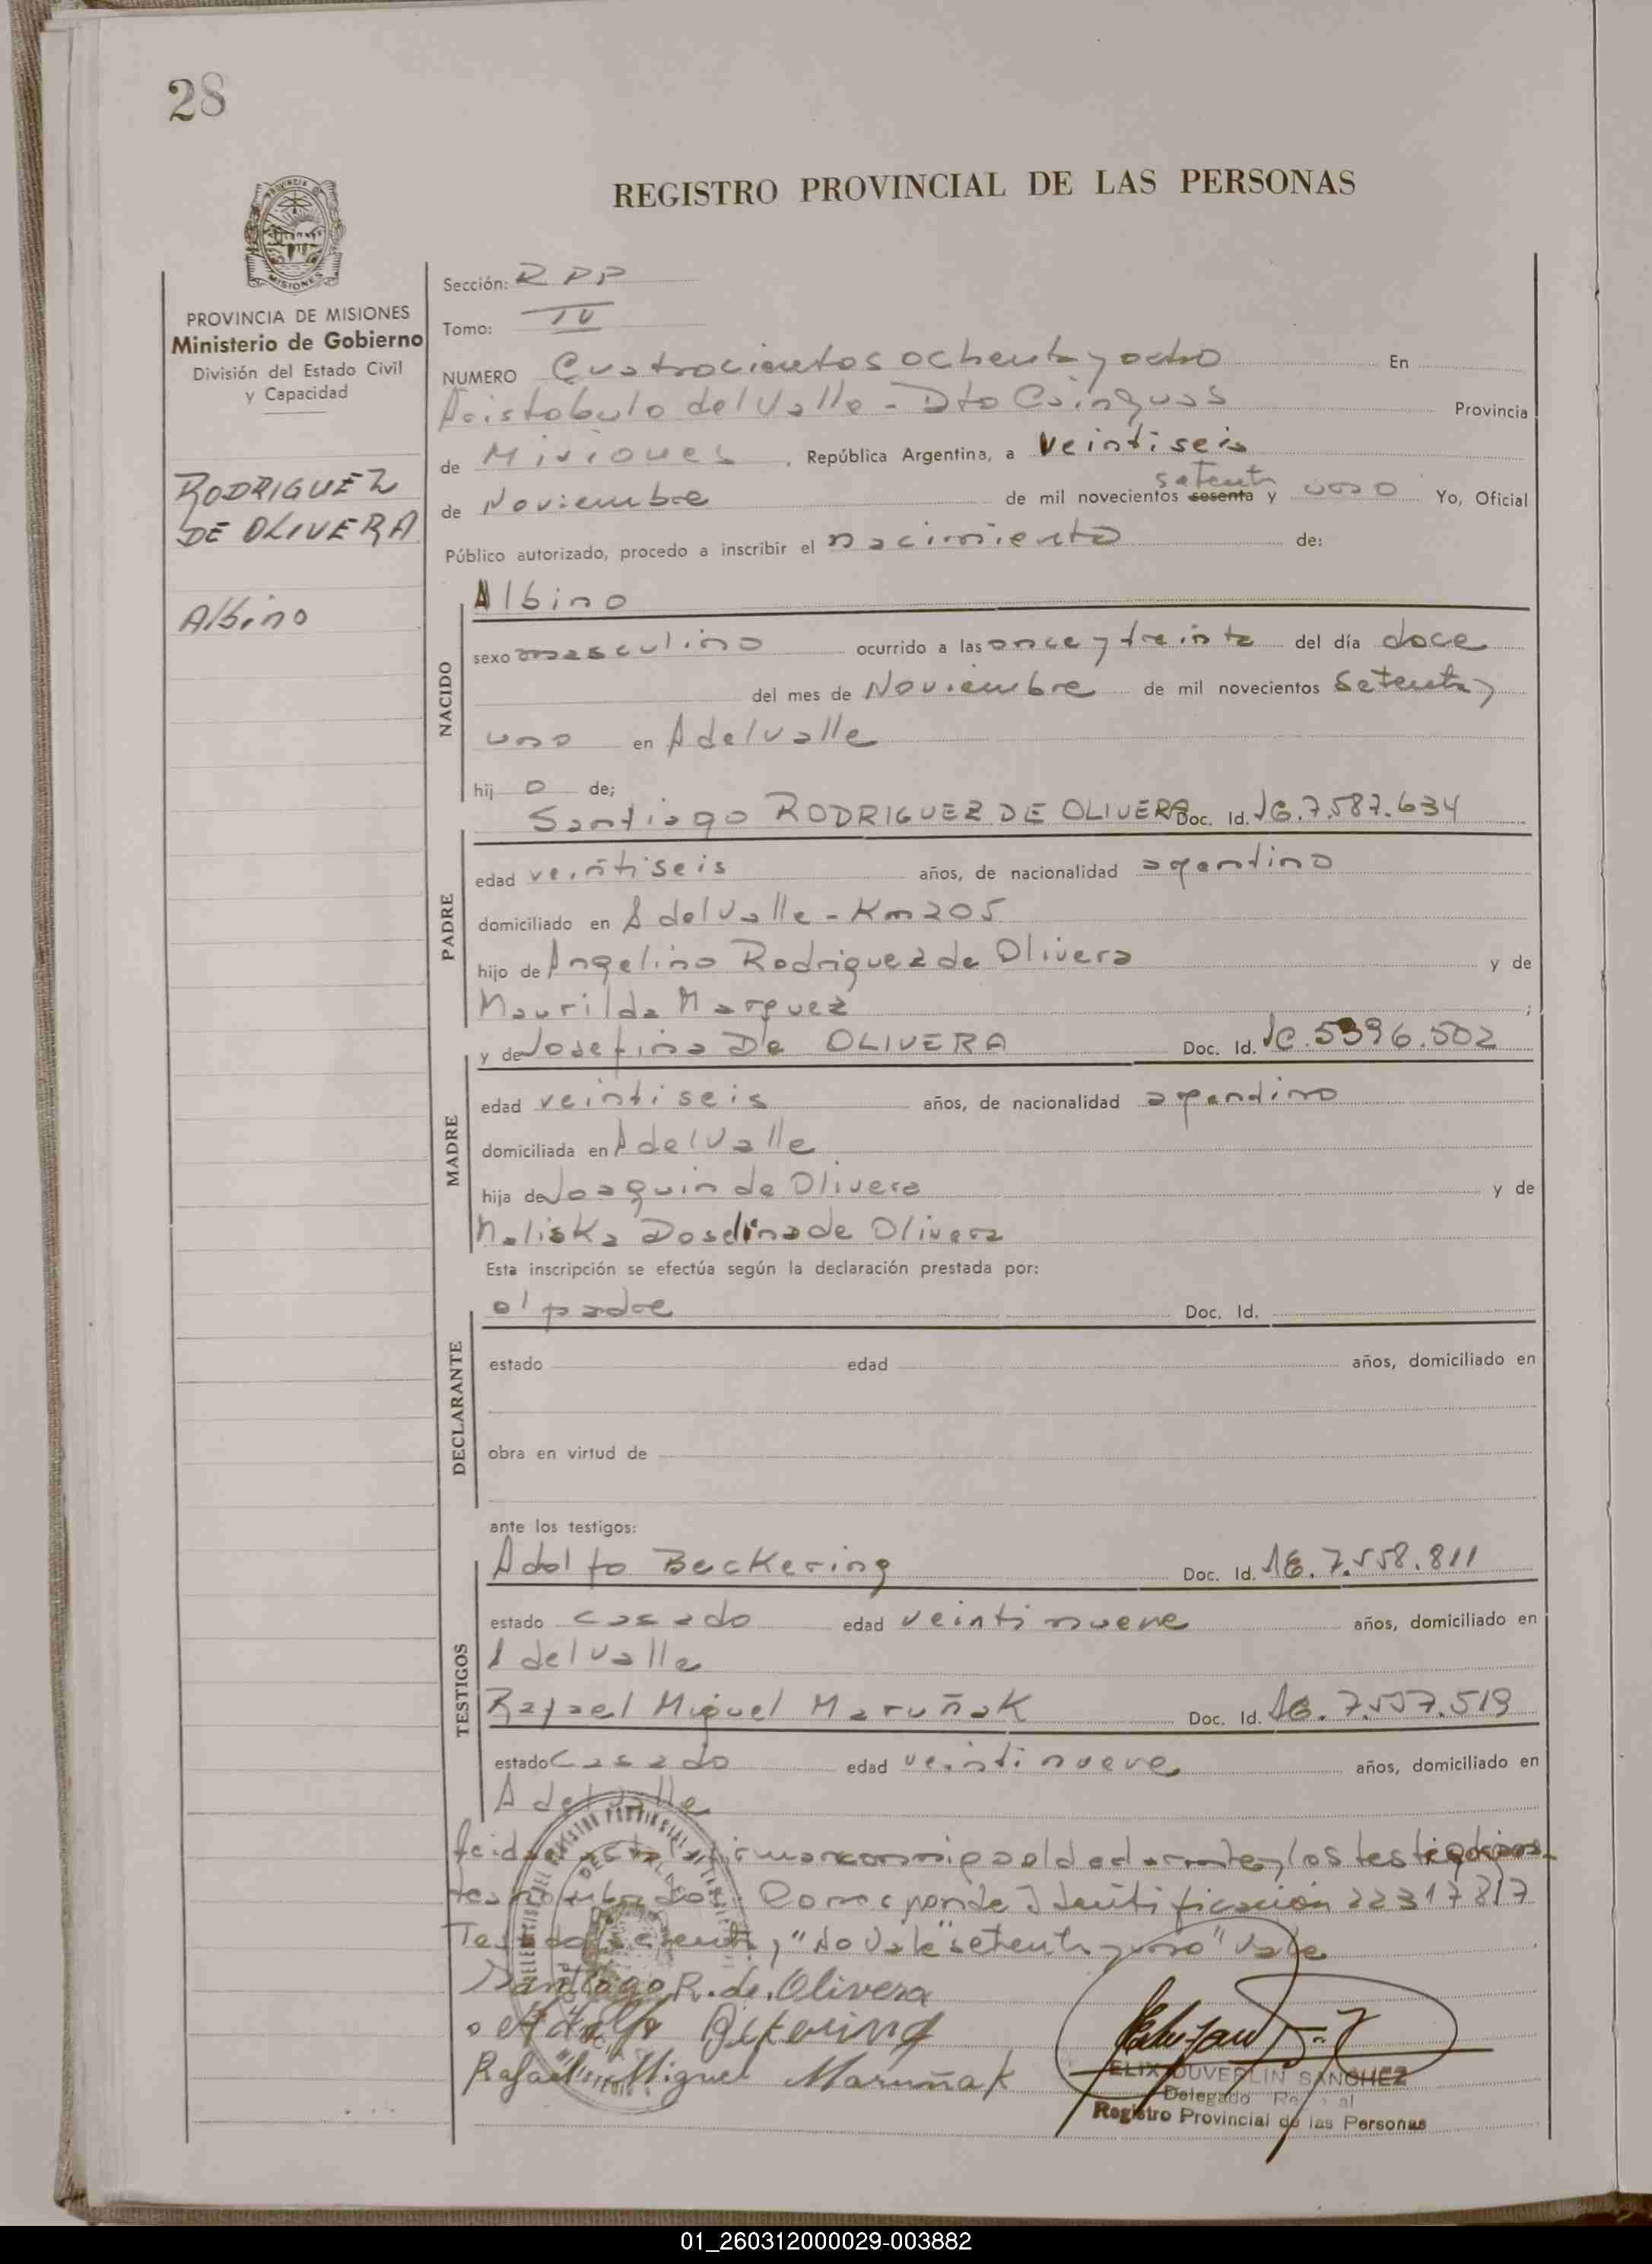 28
REGISTRO PROVINCIAL DE LAS PERSONAS
PROVINCIA DE MISIONES
Ministerio de Gobierno
División del Estado Civil
y Capacidad
RODRIGUEZ
DE OLIVERA
Albino
Sección: R P P
Tomo: IV
NUMERO Cuatrocientos ochenta y ocho En
Aristobulo del Valle - Dto Cainguas Provincia
de Misiones, República Argentina, a Veintiseis
setenta
de Noviembre de mil novecientos sesenta y uno Yo, Oficial
Público autorizado, procedo a inscribir el nacimiento de:
NACIDO
Albino
sexo masculino ocurrido a las once y treinta del día doce
del mes de Noviembre de mil novecientos Setenta y
uno en A del Valle
hij o de;
PADRE
Santiago RODRIGUEZ DE OLIVERA Doc. Id. 7.587.634
edad veintiseis años, de nacionalidad agentino
domiciliado en A del Valle - Km 205
hijo de Angelino Rodriguez de Olivera y de
Maurilda Marquez ;
MADRE
y de Josefina De OLIVERA Doc. Id. 5396.502
edad veintiseis años, de nacionalidad agendino
domiciliada en A del Valle
hija de Joaquin de Olivera y de
de Olivera
Esta inscripción se efectúa según la declaración prestada por:
DECLARANTE
el padre Doc. Id.
estado edad años, domiciliado en
obra en virtud de
ante los testigos:
TESTIGOS
Adolfo Beckering Doc. Id. 7.558.811
estado casado edad veintinueve años, domiciliado en
A del Valle
Rafael Miguel Maruñak Doc. Id. 7.557.519
estado Casado edad veintinueve años, domiciliado en
A del Valle
los testigos
Corresponde Identificación 22317817
"No Vale" setenta y uno" Vale
Santiago R. de Olivera
Rafael Miguel Maruñak
FELIX DUVERLIN SANCHEZ
Delegado
Registro Provincial de las Personas
01_260312000029-003882